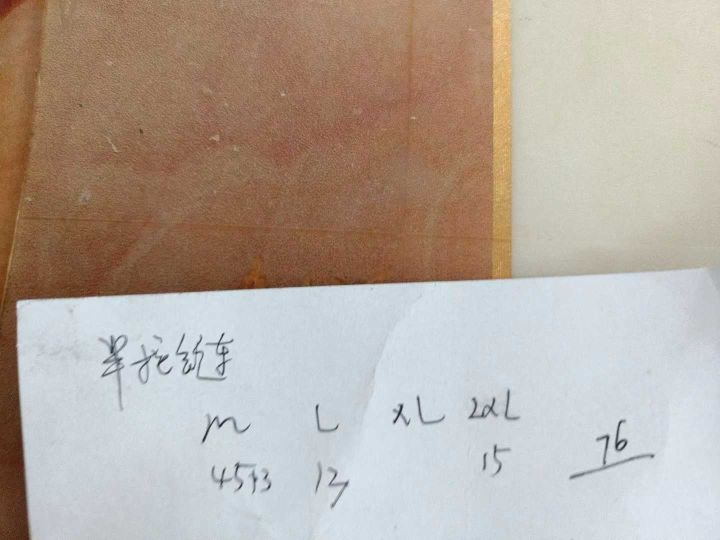 M L XL 2XL
45+3 13 15 76